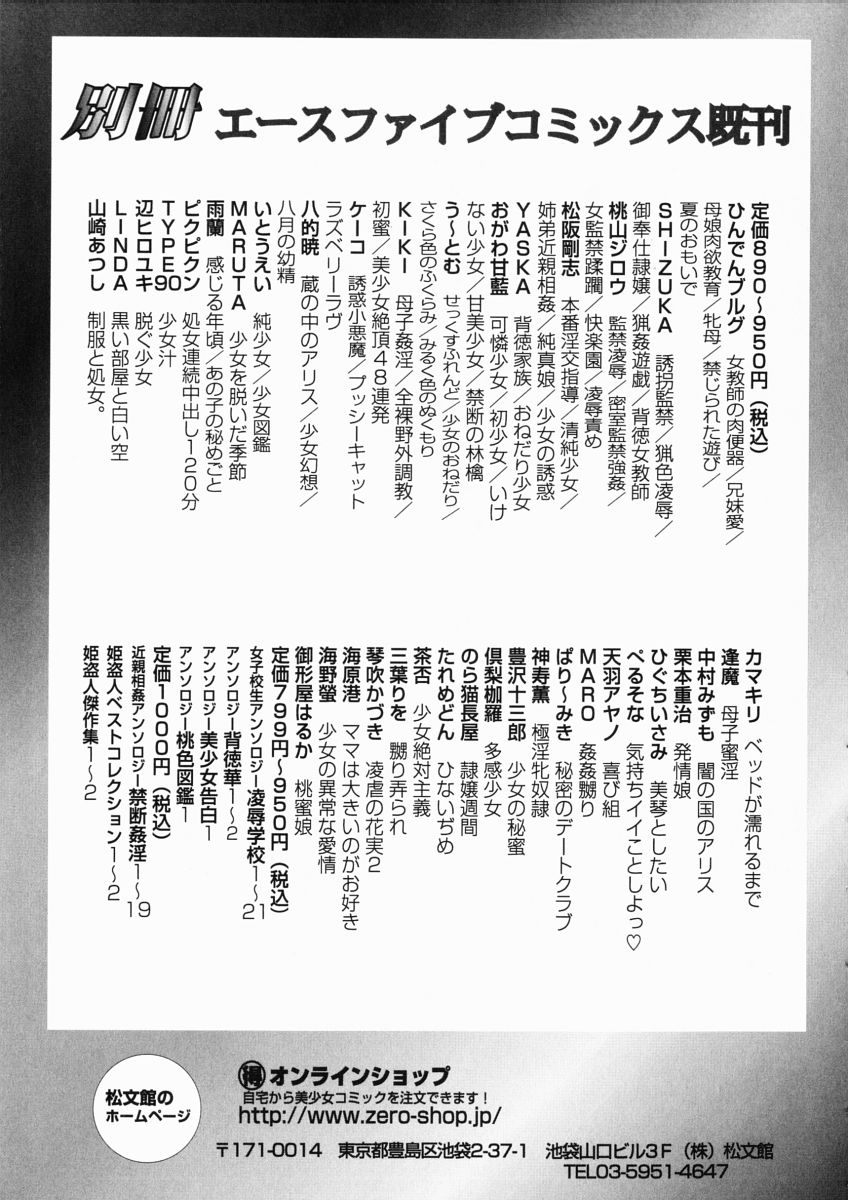 別冊 エースファイブコミックス既刊
定価890～950円（税込）
ひんでんブルグ 女教師の肉便器／兄妹愛／
母娘肉欲教育／牝母／禁じられた遊び／
夏のおもいで
SHIZUKA 誘拐監禁／猟色凌辱／
御奉仕隷嬢／猟姦遊戯／背徳女教師
桃山ジロウ 監禁凌辱／密室監禁強姦／
女監禁蹂躙／快楽園／凌辱責め
松阪剛志 本番淫交指導／清純少女／
姉弟近親相姦／純真娘／少女の誘惑
YASKA 背徳家族／おねだり少女
おがわ甘藍 可憐少女／初少女／いけ
ない少女／甘美少女／禁断の林檎
う～とむ せっくすふれんど／少女のおねだり／
さくら色のふくらみ／みるく色のぬくもり
KIKI 母子姦淫／全裸野外調教／
初蜜／美少女絶頂48連発
ケーコ 誘惑小悪魔／プッシーキャット
ラズベリーラヴ
八的暁 蔵の中のアリス／少女幻想／
八月の幼精
いとうえい 純少女／少女図鑑
MARUTA 少女を脱いだ季節
雨蘭 感じる年頃／あの子の秘めごと
ピクピクン 処女連続中出し120分
TYPE90 少女汁
辺ヒロユキ 脱ぐ少女
LINDA 黒い部屋と白い空
山崎あつし 制服と処女。
カマキリ ベッドが濡れるまで
逢魔 母子蜜淫
中村みずも 闇の国のアリス
栗本重治 発情娘
ひぐちいさみ 美琴としたい
ぺるそな 気持ちイイことしよっ♡
天羽アヤノ 喜び組
MARO 姦姦嬲り
ぱり～みき 秘密のデートクラブ
神寿薫 極淫牝奴隷
豊沢十三郎 少女の秘蜜
倶梨枷羅 多感少女
のら猫長屋 隷嬢週間
たれめどん ひないぢめ
茶否 少女絶対主義
三葉りを 嬲り弄られ
琴吹かづき 凌虐の花実2
海原港 ママは大きいのがお好き
海野螢 少女の異常な愛情
御形屋はるか 桃蜜娘
定価799円～950円（税込）
女子校生アンソロジー凌辱学校1～21
アンソロジー背徳華1～2
アンソロジー美少女告白1
アンソロジー桃色図鑑1
近親相姦アンソロジー禁断姦淫1～19
定価1000円（税込）
姫盗人ベストコレクション1～2
姫盗人傑作集1～2
松文館の
ホームページ
得オンラインショップ
自宅から美少女コミックを注文できます！
http://www.zero-shop.jp/
〒171-0014 東京都豊島区池袋2-37-1 池袋山口ビル3F（株）松文館
TEL03-5951-4647